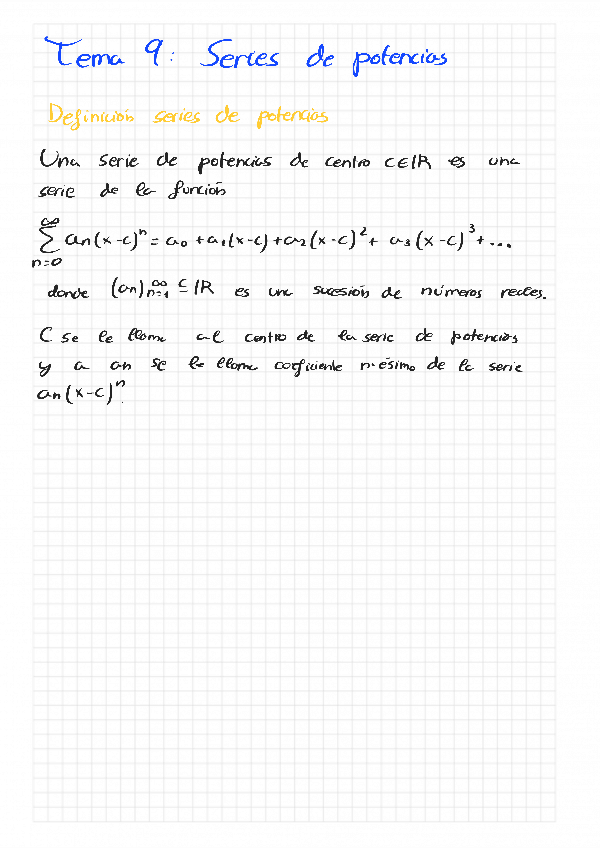 Tema 9: Series de potencias
Definición series de potencias
Una serie de potencias de centro c∈ℝ es una
serie de la función
∞
∑ an(x-c)ⁿ = a₀ + a₁(x-c) + a₂(x-c)² + a₃(x-c)³ + ...
n=0
donde (an)∞n=1 ⊆ ℝ es una sucesión de números reales.
C se le llama al centro de la serie de potencias
y a an se le llama coeficiente n-ésimo de la serie
an(x-c)ⁿ.